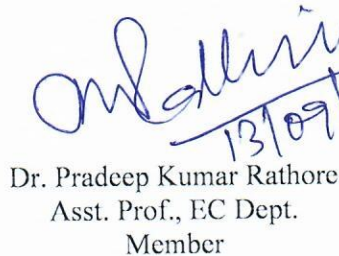 13/09/
Dr. Pradeep Kumar Rathore
Asst. Prof., EC Dept.
Member